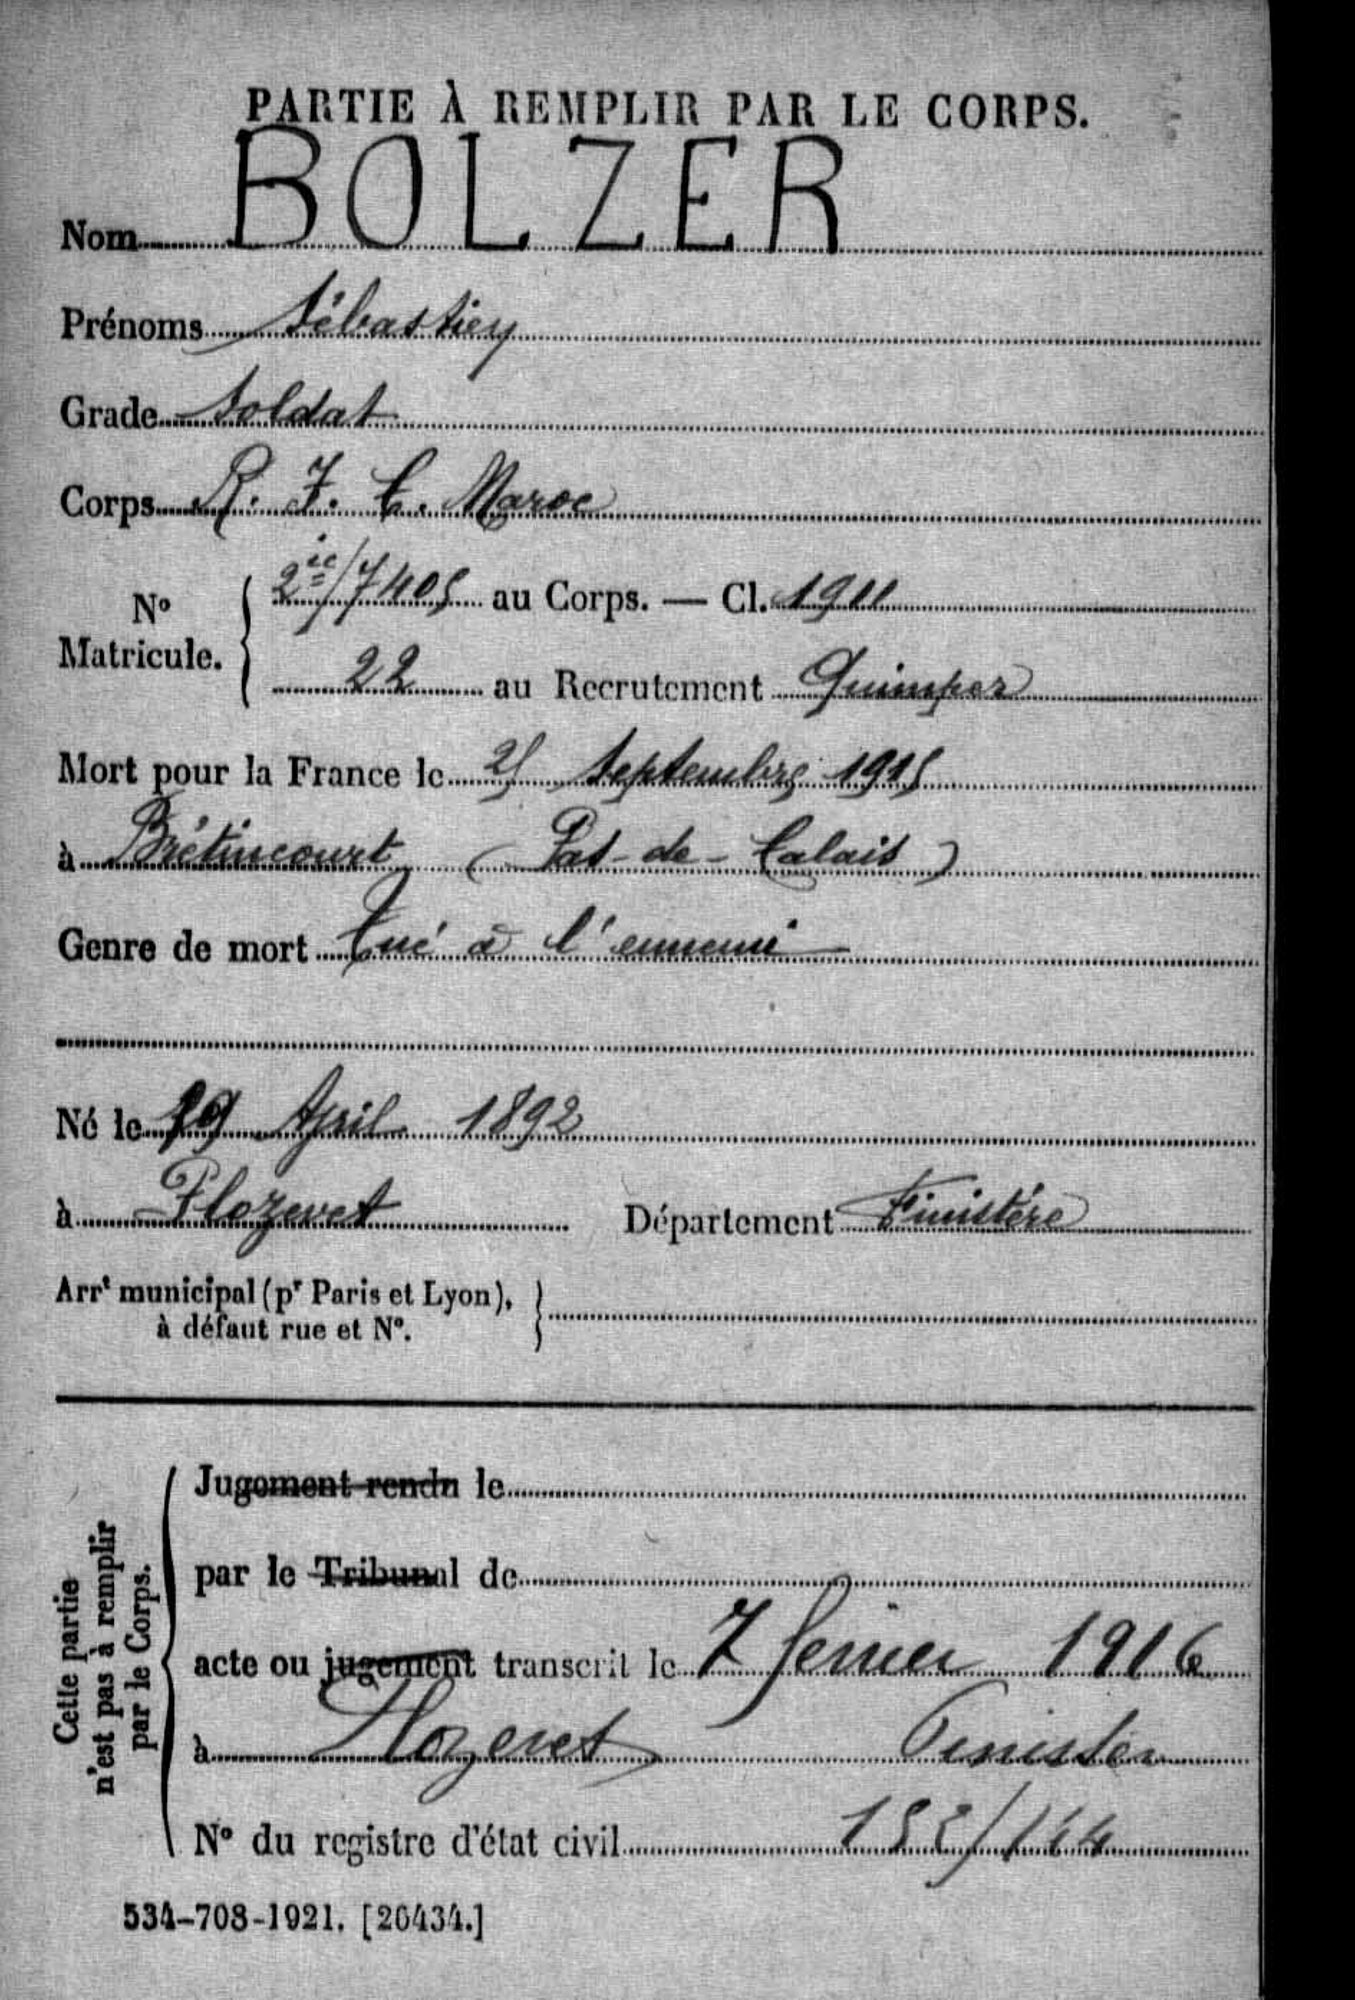 PARTIE À REMPLIR PAR LE CORPS.
Nom BOLZER
Prénoms Sébastien
Grade Soldat
Corps R. I. C. Maroc
No Matricule. { 2ie/7405 au Corps. — Cl. 1911
22 au Recrutement Quimper
Mort pour la France le 25 Septembre 1915
à Brétincourt (Pas-de-Calais)
Genre de mort Tué à l'ennemi
Né le 19 April 1892
à Plozevet Département Finistère
Arrt municipal (pr Paris et Lyon),
à défaut rue et No.
Cette partie
n'est pas à remplir
par le Corps.
Jugement rendu le
par le Tribunal de
acte ou jugement transcrit le 7 fevrier 1916
à Plozevet Finister
No du registre d'état civil
534-708-1921. [26434.]